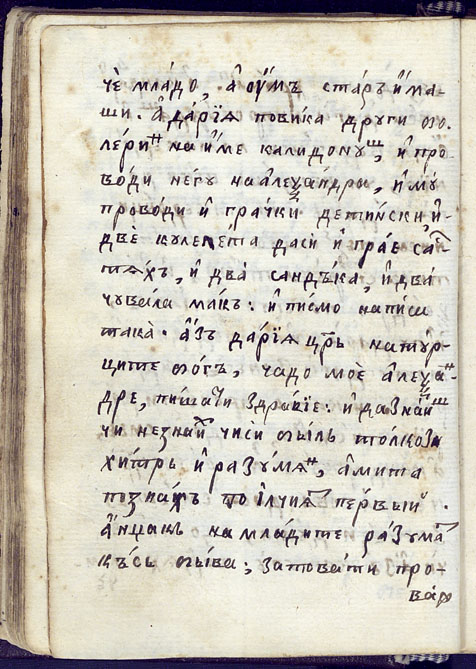 че мла́до, а҆ оу҆́мъ ста́ръ и҆́ма-
ши. а҆ да́рїѧ повика други ѡо-
ле́риⷩ҇ на и҆́ме калидонꙋшⷭ, и҆ про-
во́ди него на а҆леѯа́ндра, и҆ мꙋ
прово́ди и҆ гра́чки дети́нски и҆-
двѐ кꙋлеле́та да си́ и҆ грае са́
тѧхъ, и҆ два санд́ъка, и҆ два
чꙋва́ла ма́къ: и҆ писмо̀ напи́са
така̀. а҆́зъ да́рїѧ цр҃ь на тꙋ́р-
ците бо́гъ, чадо моѐ а҆леѯаⷩ-
дре, пи́ша ти здра́вїе. и҆ да зна́иш
чи незна́й чи си бы́лъ то́лкози
хи́тръ и҆ разꙋ́мѧⷩ, а҆ми та
позна́хъ по и҆лчиѧⷮ пе́рвый.
а҆нџакъ на мла́дите ра́зꙋмаⷮ
къ́съ быва; за това́ ти про-
ва́ѡ